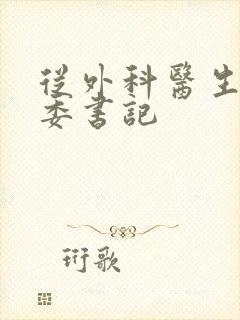 從外科醫生
委書記
珩歌